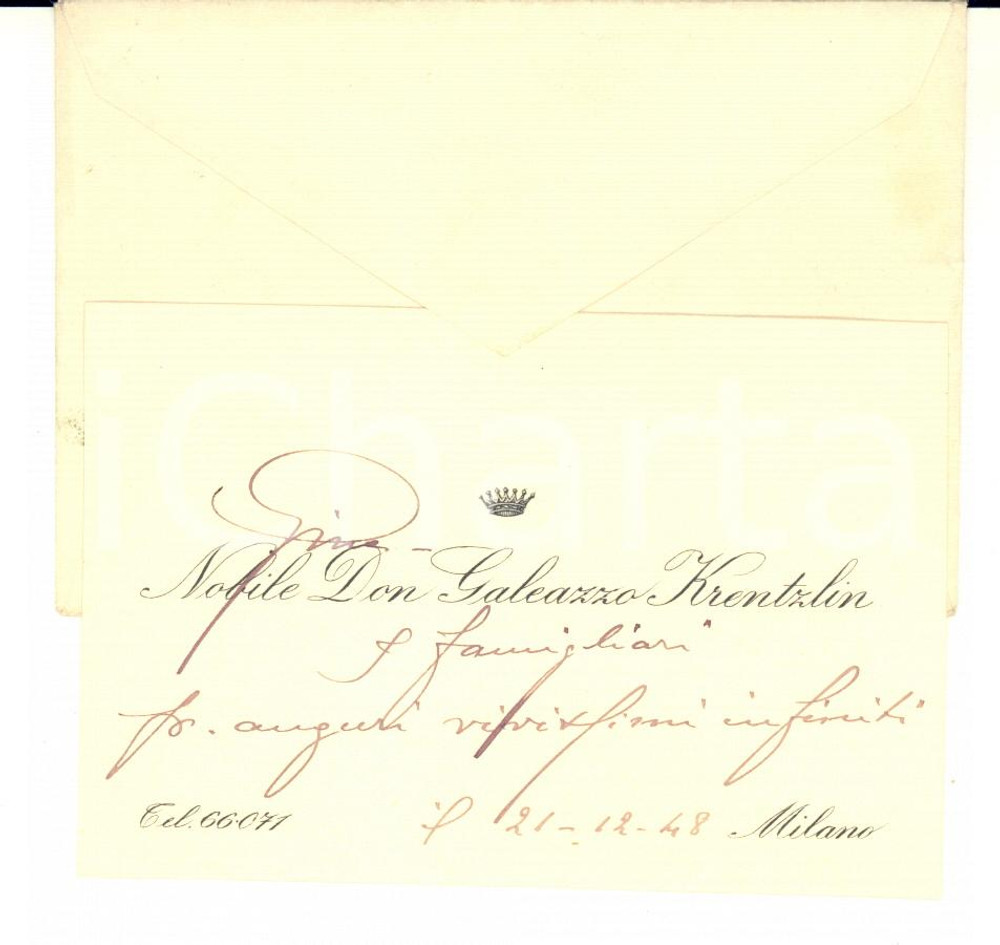 iCharta
Nobile Don Galeazzo Krentzlin
famigliari
auguri vivissimi infiniti
Tel. 66-071 il 21-12-48 Milano